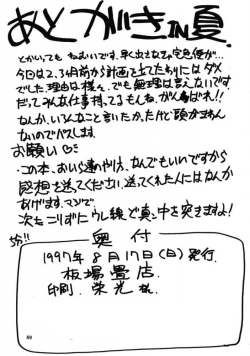 あとがき IN 夏.
とかいっても ねむいです.早く出さなきゃ宅急便が…
今回は2,3ヶ月前から計画を立てたわりにはダメ
でした.理由は様々.でも無理は言えないです.
だってみんな仕事持ってるもんね.がんばれ!!
なんか.いろんなこと言いたかったけど頭がまわん
ないのでパスします.
お願い
・この本、おいら達のやり方、なんでもいいですから
感想を送ってください.送ってくれた人にはなんか
あげます.マジで.
次もこりずにウレ線ど真ん中を突きますよ!
奥付
1997年8月17日(日)発行.
板場畳店.
印刷.栄光様.
69